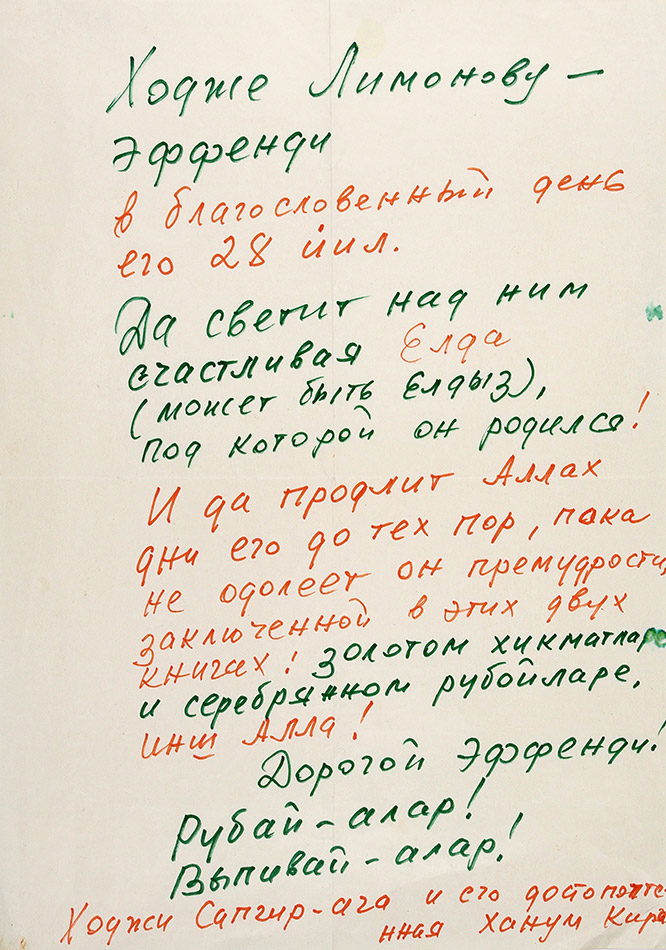 Ходже Лимонову –
эффенди
в благословенный день
его 28 йил.
Да светит над ним
счастливая Елда
(может быть Елдыз),
под которой он родился!
И да продлит Аллах
дни его до тех пор, пока
не одолеет он премудрости,
заключенной в этих двух
книгах! Золотом хикматларе
и серебрянном рубойларе.
инш Алла!
Дорогой Эффенди!
Рубай-алар!
Выпивай-алар!
Ходжи Сапгир-ага и его достопочте-
нная Ханум Кира